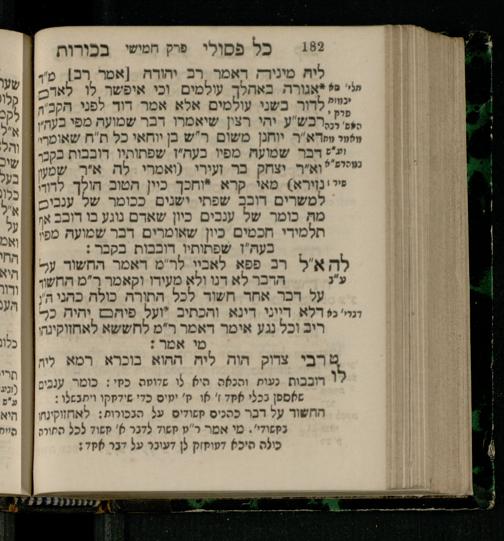 182 כל פסולי פרק חמישי בכורות
ליה מיניה דאמר רב יהודה [אמר רב] מ״ד
*אגורה באהלך עולמים וכי איפשר לו לאדם
לדור בשני עולמים אלא אמר דוד לפני הקב״ה
רבש״ע יהי רצון שיאמרו דבר שמועה מפי בעה״ז
דא״ר יוחנן משום ר״ש בן יוחאי כל ת״ח שאומרי׳
דבר שמועה מפיו בעה״ז שפתותיו דובבות בקבר
וא״ר יצחק בר זעירי (ואמרי לה א״ר שמעון
נזירא) מאי קרא *וחכך כיין הטוב הולך לדודי
למשרים דובב שפתי ישנים ככומר של ענבים
מה כומר של ענבים כיון שאדם נוגע בו דובב אף
תלמידי חכמים כיון שאומרים דבר שמועה מפיו
בעה״ז שפתותיו דובבות בקבר :
תלי׳ סא
יבמות
פרק י
מאמר
וע״ש
שיר ז
לה א״ל רב פפא לאביי לר״מ דאמר החשוד על
ע״ב
הדבר לא דנו ולא מעידו וקאמר ר״מ החשוד
על דבר אחד חשוד לכל התורה כולה כהני ה״נ
דלא דייני דינא והכתיב *ועל פיהם יהיה כל
דברי׳ כא
ריב וכל נגע אימר דאמר ר״מ לחששא לאחזוקינהו
מי אמר :
לו
טרבי צדוק הוה ליה ההוא בוכרא רמא ליה
דובבות נעות והנאה היא לו שדומה כחי : כומר ענבים
שאספן בכלי אחד ז׳ או ח׳ ימים כדי שידחקו ויתבשלו :
החשוד על דבר כהנים חשודים על הבכורות : לאחזוקינהו
בחשודי׳. מי אמר ר״מ חשוד לדבר א׳ חשוד לכל התורה
כולה היכא דמוחזק לן דעובר על דבר אחד :